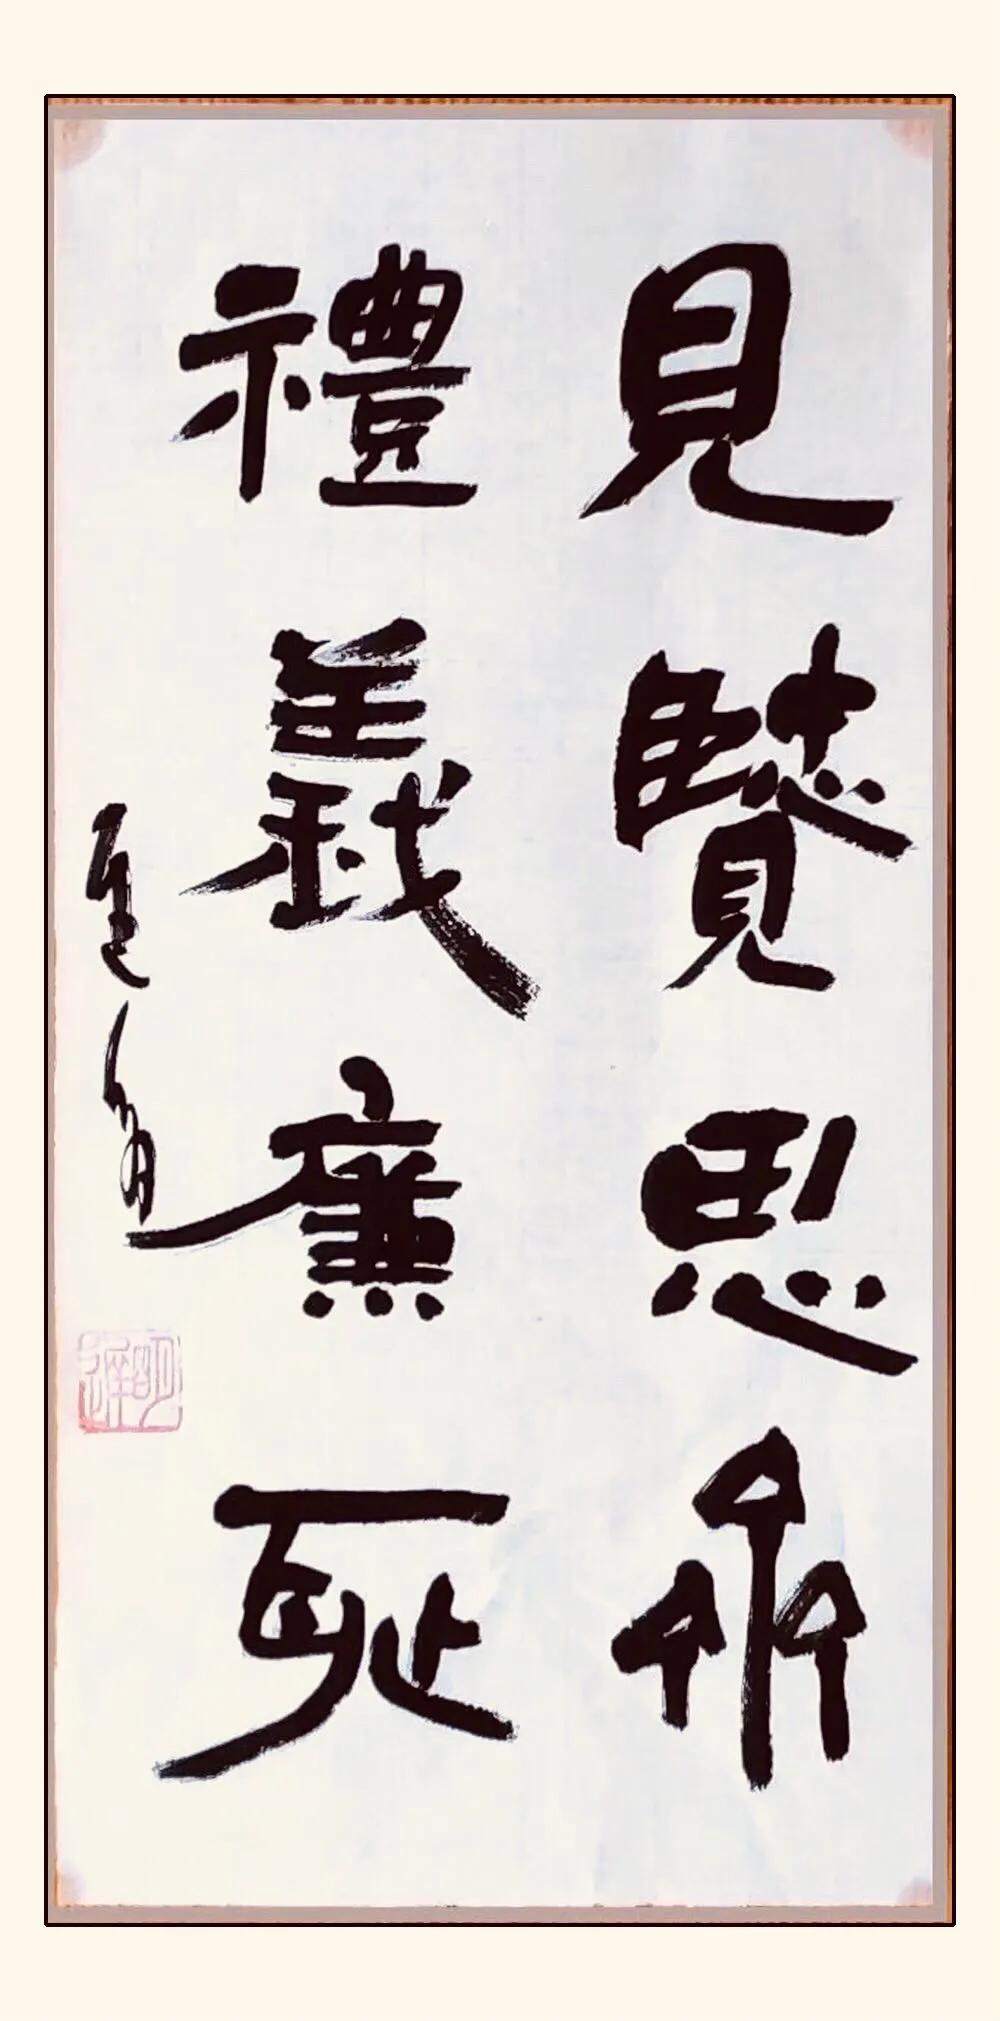 見賢思齊
禮義廉恥